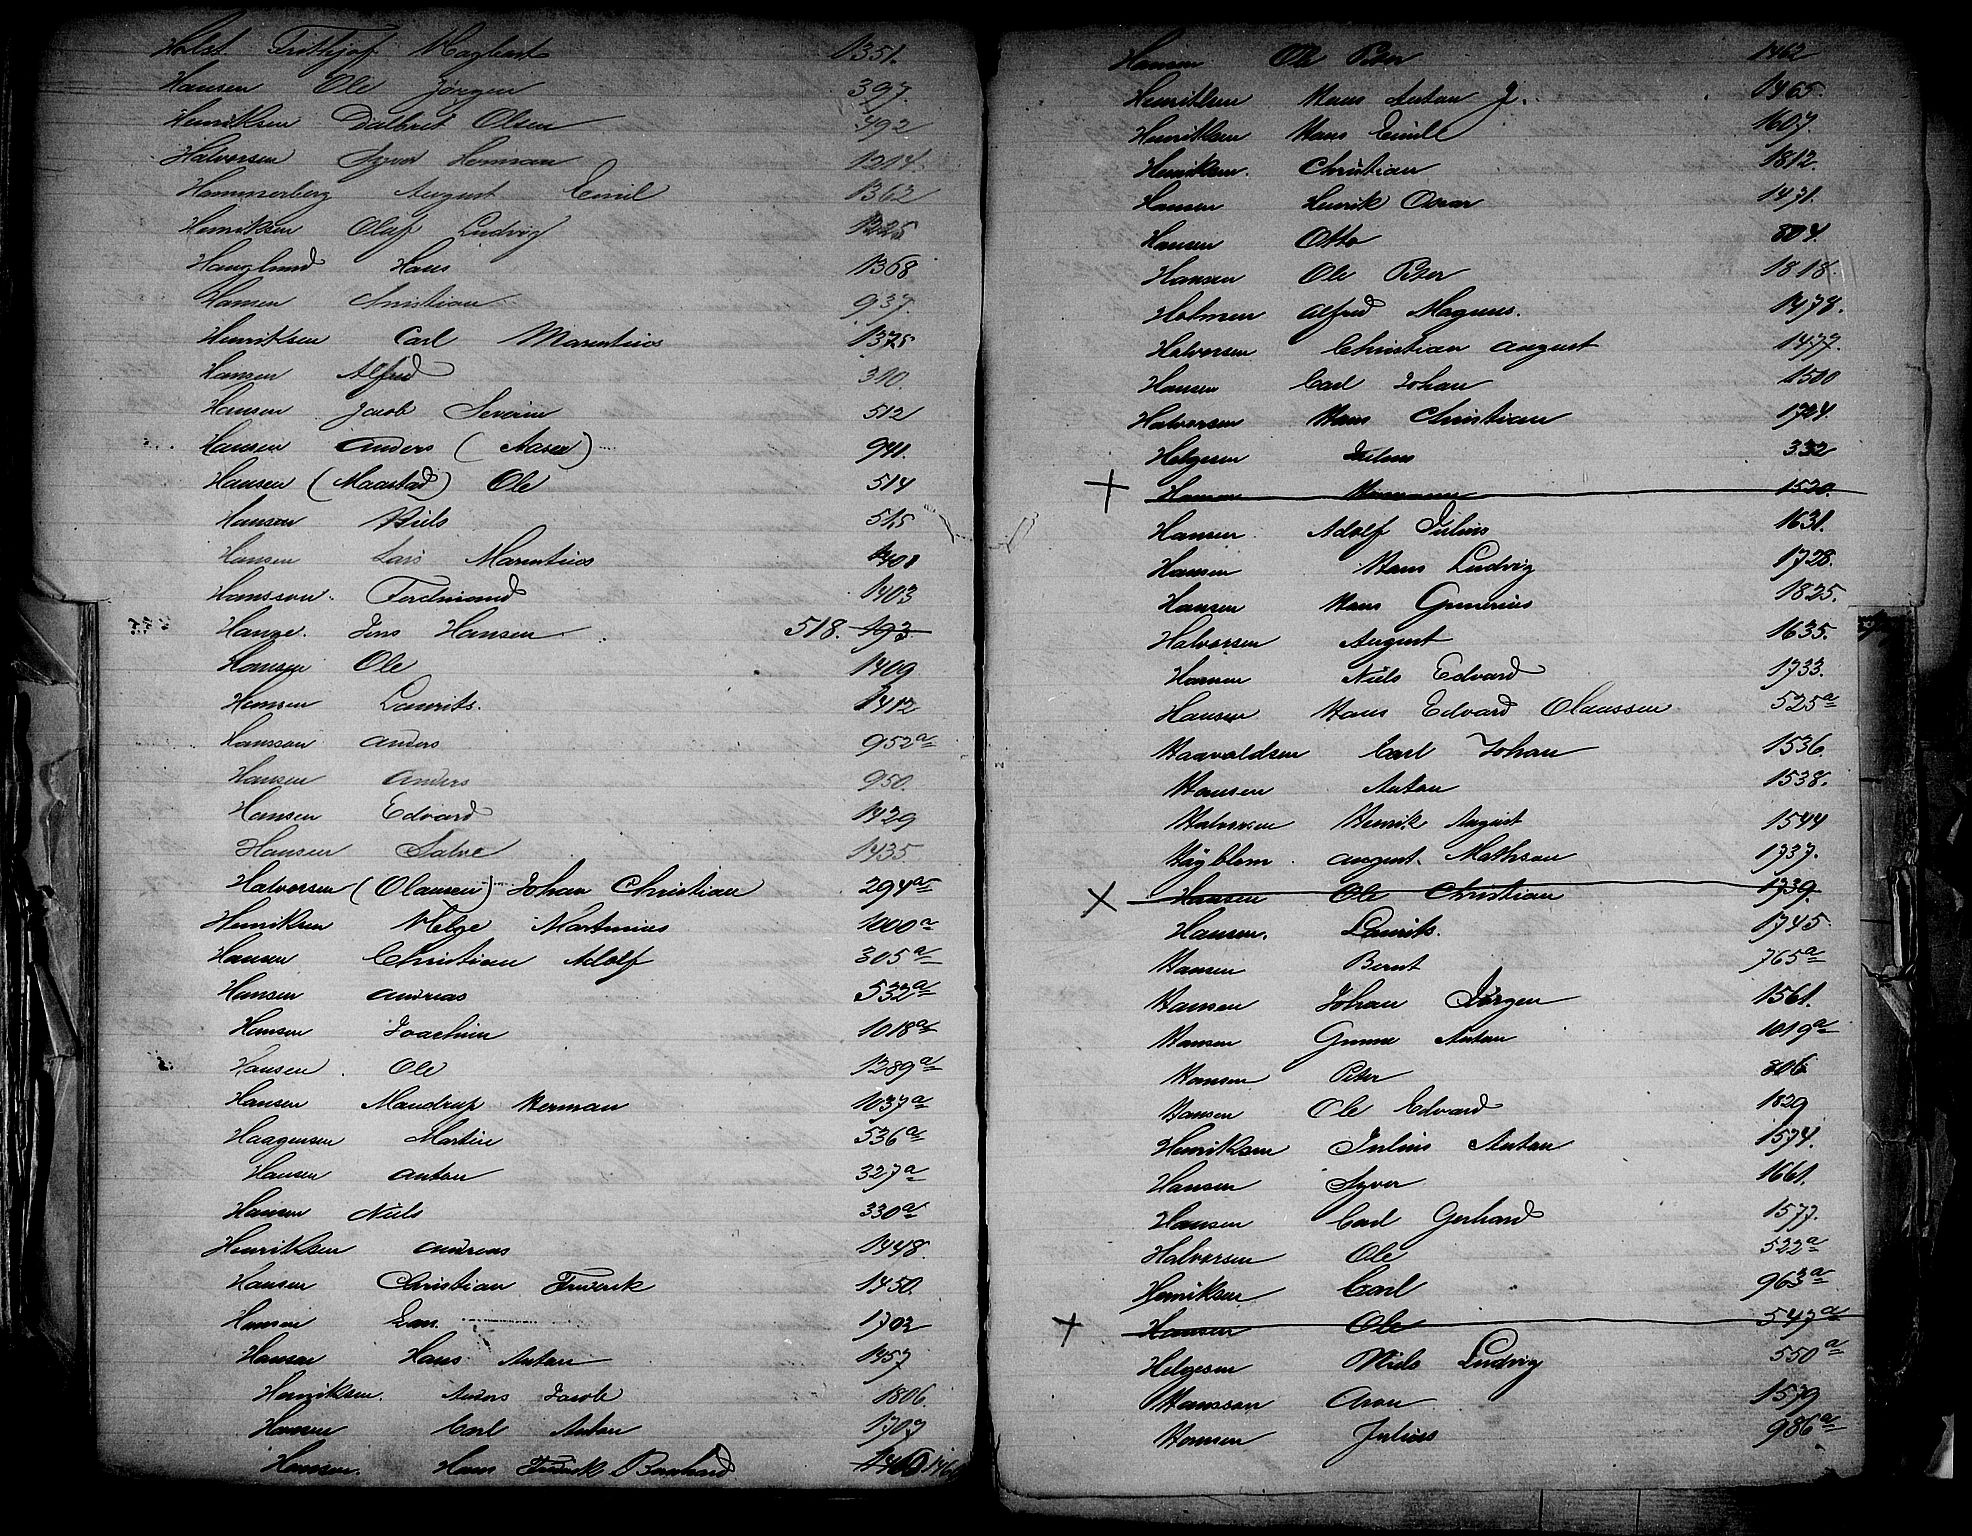 Holst Frithjof Hagbart 1351.
Hansen Ole Jörgen 397.
Henriksen Dalbret Olsen 492
Halvorsen Syver Herman 1204.
Hammerberg August Emil 1362
Henriksen Olaf Ludvig 1225
Hauglund Hans 1368
Hansen Christian 937.
Henriksen Carl Marentius 1375
Hansen Alfred 310.
Hansen Jacob Severin 512
Hansen Anders (Aasen) 941.
Hansen (Maastad) Ole 514
Hansen Niels 515
Hansen Lars Marentius 1401
Hanssen. Ferdinand 1403
Hauge. Jens Hansen. 518. 193
Hansen Ole 1409
Hansen Laurits. 1412
Hansson Anders 952a
Hansen Anders 950.
Hansen Edvard 1429
Hansen Salve 1435
Halvorsen (Olausen) Johan Christian 294a
Henriksen Helge Martinius 1000a
Hansen Christian Adolf 305a
Hansen Andreas 532a
Hansen Joachim 1018a
Hansen. Ole 1289a
Hansen Mandrup Herman 1037a
Haagensen Martin 536a
Hansen Anton 327a
Hansen Niels 330a
Henriksen Andreas 1448.
Hansen Christian Fredrik 1450.
Hansen Lars 1702
Hansen Hans Anton 1457
Henriksen. Anders Jacob 1806.
Hansen Carl Anton 1707
Hansen. Hans Fredrik Bernhard 1460
Hansen Ole Peter 1462
Henriksen Hans Anton J. 1465.
Henriksen Hans Emil 1607.
Henriksen. Christian 1812.
Hansen Henrik Oscar 1471.
Hansen Otto 804.
Hansen Ole Peter 1818.
Holmen Alfred Magnus. 1478.
Halvorsen Christian August 1477.
Hansen Carl Johan 1500
Halvorsen Hans Christian 1724.
Helgesen Julius 332
+ Hansen Hermann 1520.
Hansen Adolf Julius 1631.
Hansen Hans Ludvig 1728.
Hansen Hans Gunerius 1825.
Halvorsen August 1635.
Hansen Niels Edvard 1733.
Hansen Hans Edvard Olaussen 525a
Haavaldsen Carl Johan 1536
Hansen Anton 1538.
Halvorsen Henrik August 1544
Häyblom. August. Mathson 1737.
× Hansen Ole Christian 1739.
Hansen. Laurits. 1745
Hansen Bernt 765a
Hansen Johan Jörgen 1561.
Hansen Gunne Anton 1019a
Hansen Peter 806
Hansen Ole Edvard 1829
Henriksen Julius Anton 1574.
Hansen Syver 1661.
Hansen Carl Gerhard 1577.
Halvorsen Ole 522a
Henriksen Carl 963a
+ Hansen Ole 547a
Helgesen Niels Ludvig 550a
Hansson Aron 1579
Hansen Julius 986a